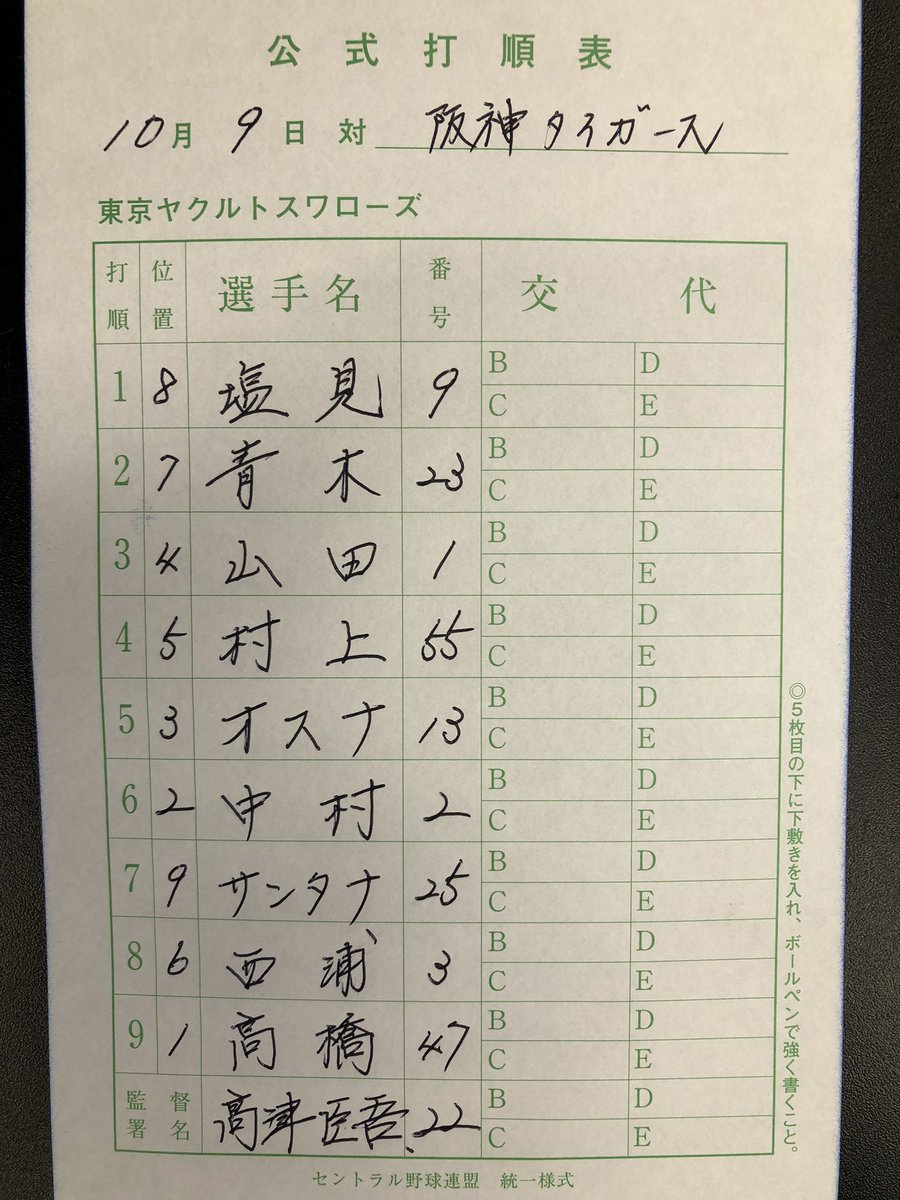 公式打順表
10月9日 対 阪神タイガース
東京ヤクルトスワローズ
打順 位置 選手名 番号 交代
1 8 塩見 9 B D
C E
2 7 青木 23 B D
C E
3 4 山田 1 B D
C E
4 5 村上 55 B D
C E
5 3 オスナ 13 B D
C E
6 2 中村 2 B D
C E
7 9 サンタナ 25 B D
C E
8 6 西浦 3 B D
C E
9 1 高橋 47 B D
C E
監督署名 高津臣吾 22 B D
C E
◎5枚目の下に下敷きを入れ、ボールペンで強く書くこと。
セントラル野球連盟 統一様式